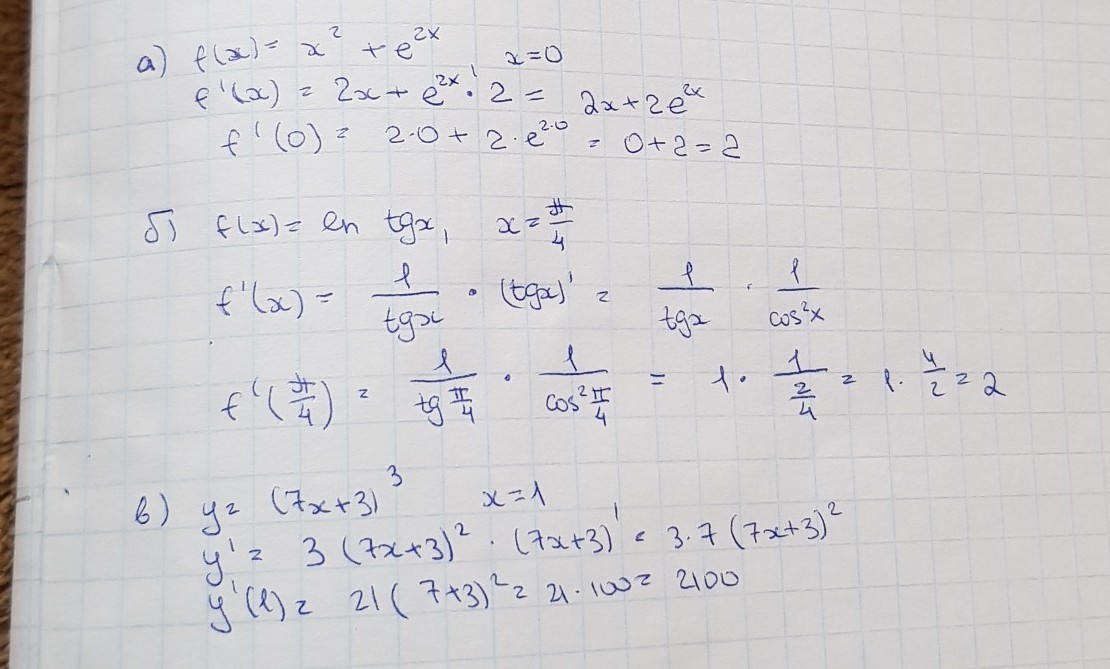 а) f(x)= x² + e²ˣ x=0
f'(x) = 2x + e²ˣ · 2 = 2x+2e²ˣ
f'(0) = 2·0 + 2·e²·⁰ = 0+2=2
б) f(x)= ln tgx, x=π/4
f'(x) = 1/tgx · (tgx)' = 1/tgx · 1/cos²x
f'(π/4) = 1/tg π/4 · 1/cos² π/4 = 1· 1/(2/4) = 1· 4/2 = 2
в) y= (7x+3)³ x=1
y' = 3 (7x+3)² · (7x+3)' = 3·7 (7x+3)²
y'(1) = 21 (7+3)² = 21·100 = 2100